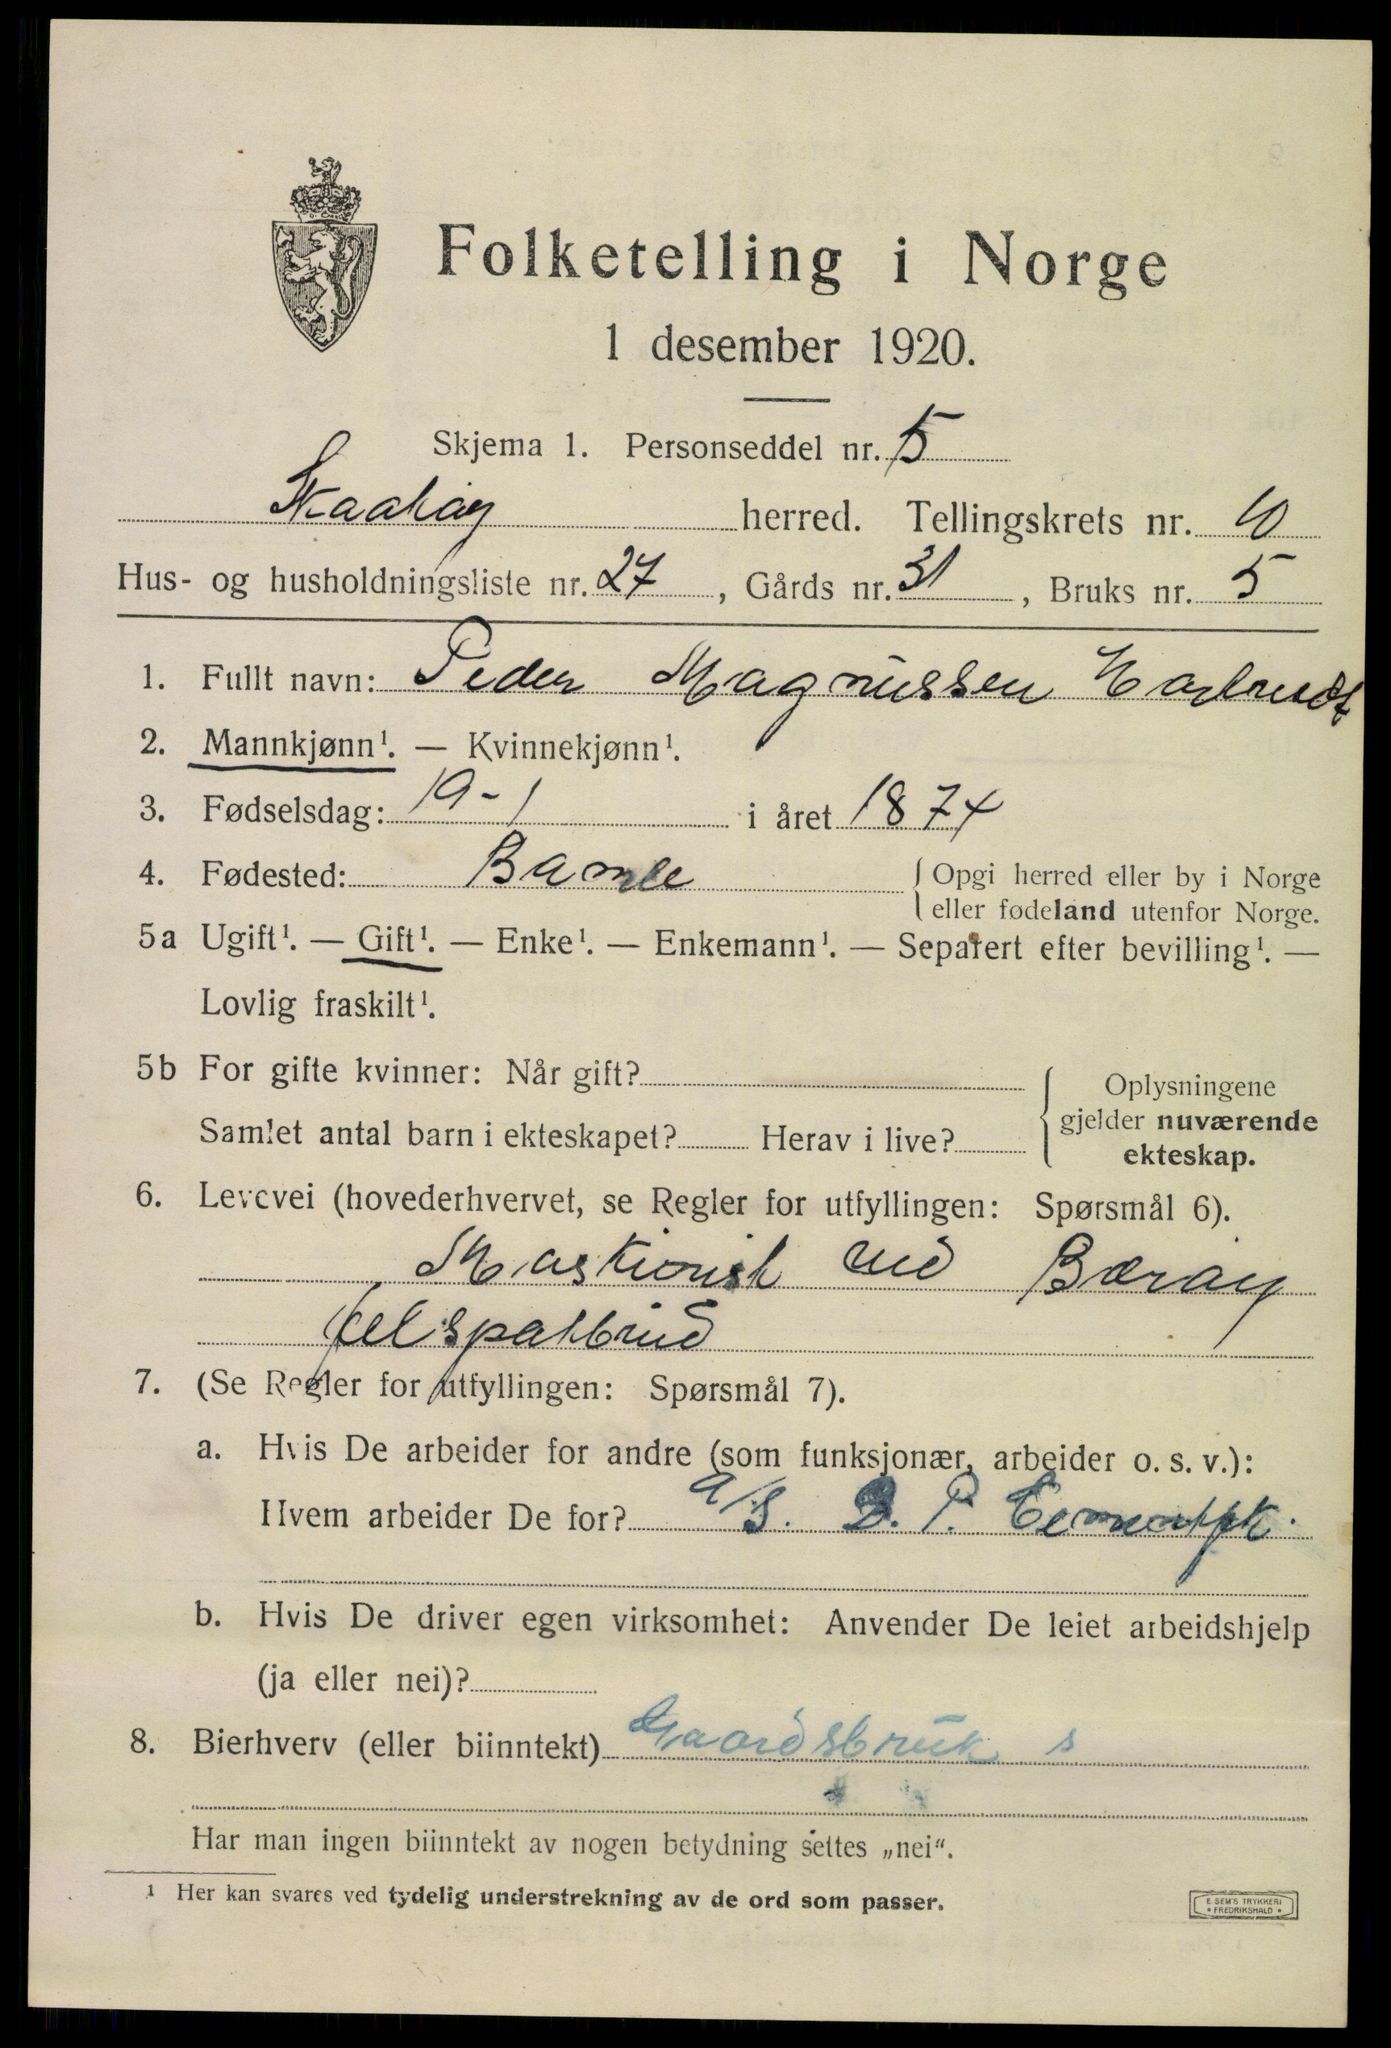 Folketelling i Norge
1 desember 1920.
Skjema 1. Personseddel nr. 5
Skaatøy herred. Tellingskrets nr. 10
Hus- og husholdningsliste nr. 27, Gårds nr. 31, Bruks nr. 5
1. Fullt navn: Peder Magnussen
2. Mannkjønn¹. — Kvinnekjønn¹.
3. Fødselsdag: 19-1 i året 1874
4. Fødested: Bamle { Opgi herred eller by i Norge
eller fødeland utenfor Norge.
5a Ugift¹. — Gift¹. — Enke¹. — Enkemann¹. — Separert efter bevilling¹. —
Lovlig fraskilt¹.
5b For gifte kvinner: Når gift?
Samlet antal barn i ekteskapet? Herav i live?
{ Oplysningene
gjelder nuværende
ekteskap.
6. Levevei (hovederhvervet, se Regler for utfyllingen: Spørsmål 6).
Maskionist ved Bærøy
felspatbrud
7. (Se Regler for utfyllingen: Spørsmål 7).
a. Hvis De arbeider for andre (som funksjonær, arbeider o. s. v.):
Hvem arbeider De for? A/S. P.
b. Hvis De driver egen virksomhet: Anvender De leiet arbeidshjelp
(ja eller nei)?
8. Bierhverv (eller biinntekt) Gaardsbruk s
Har man ingen biinntekt av nogen betydning settes „nei“.
¹ Her kan svares ved tydelig understrekning av de ord som passer.
E. SEM'S TRYKKERI
* FREDRIKSHALD *